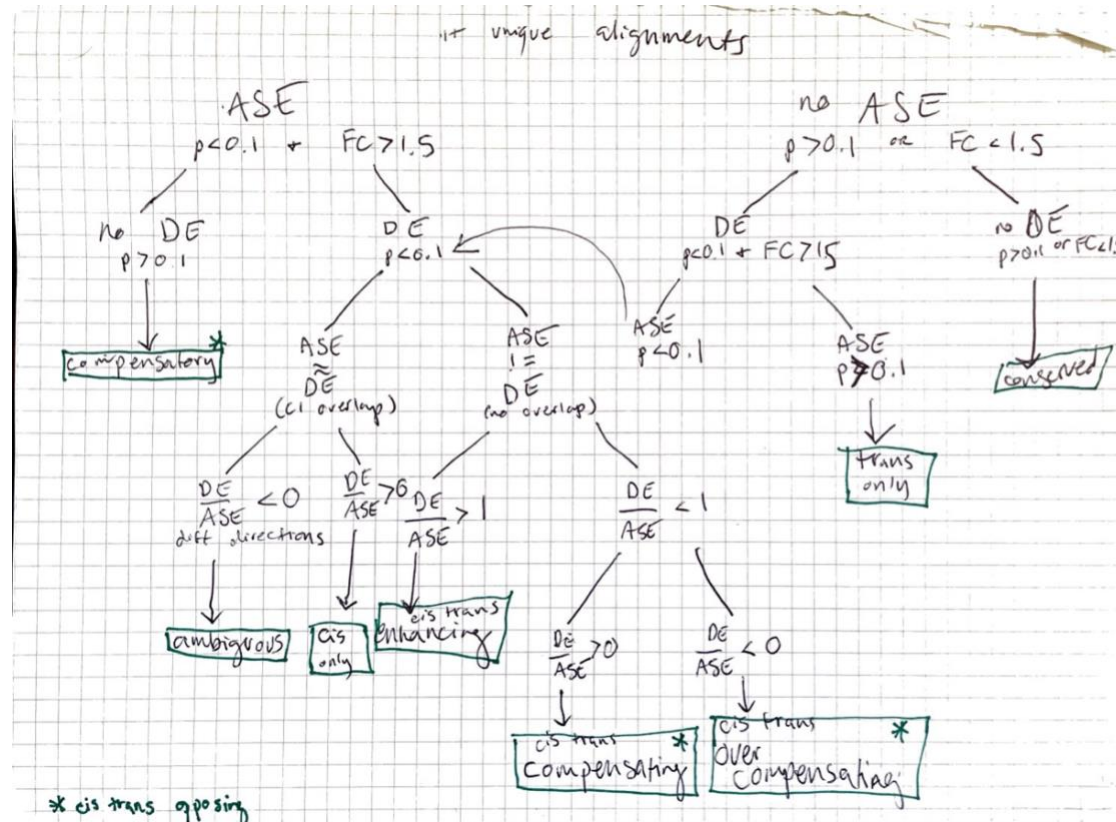 unique alignments
ASE
p<0.1 + FC>1.5
no ASE
p>0.1 or FC<1.5
no DE
p>0.1
DE
p<0.1
DE
p<0.1 + FC>1.5
no DE
p>0.1 or FC<1.5
compensatory *
ASE
≈
DE
(CI overlap)
ASE
!=
DE
(no overlap)
ASE
p<0.1
ASE
p>0.1
conserved
trans
only
DE/ASE <0
diff directions
DE/ASE >0
DE/ASE >1
DE/ASE <1
ambiguous
cis
only
cis trans
enhancing
DE/ASE >0
DE/ASE <0
cis trans *
compensating
cis trans *
over
compensating
* cis trans opposing